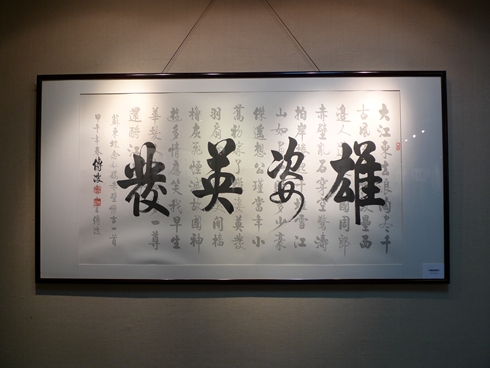 雄姿英發
大江東去浪淘盡千
古風流人物故壘西
邊人道是三國周郎
赤壁亂石穿空驚濤
拍岸捲起千堆雪江
山如畫一時多少豪
傑遙想公瑾當年小
喬初嫁了雄姿英發
羽扇綸巾談笑間檣
櫓灰飛煙滅故國神
遊多情應笑我早生
華髮人生如夢一尊
還酹江月
蘇東坡念奴嬌赤壁懷古一首
甲午年春